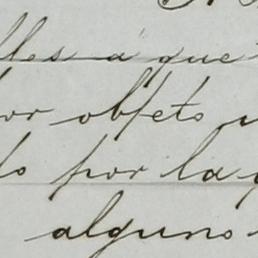 lles á que
por objeto
lo por la
alguno